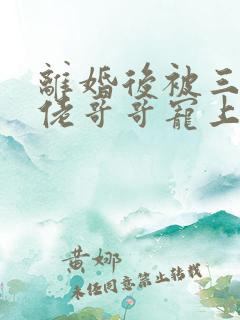 離婚後被三
佬哥哥寵上
黄娜
未任同意禁止转载